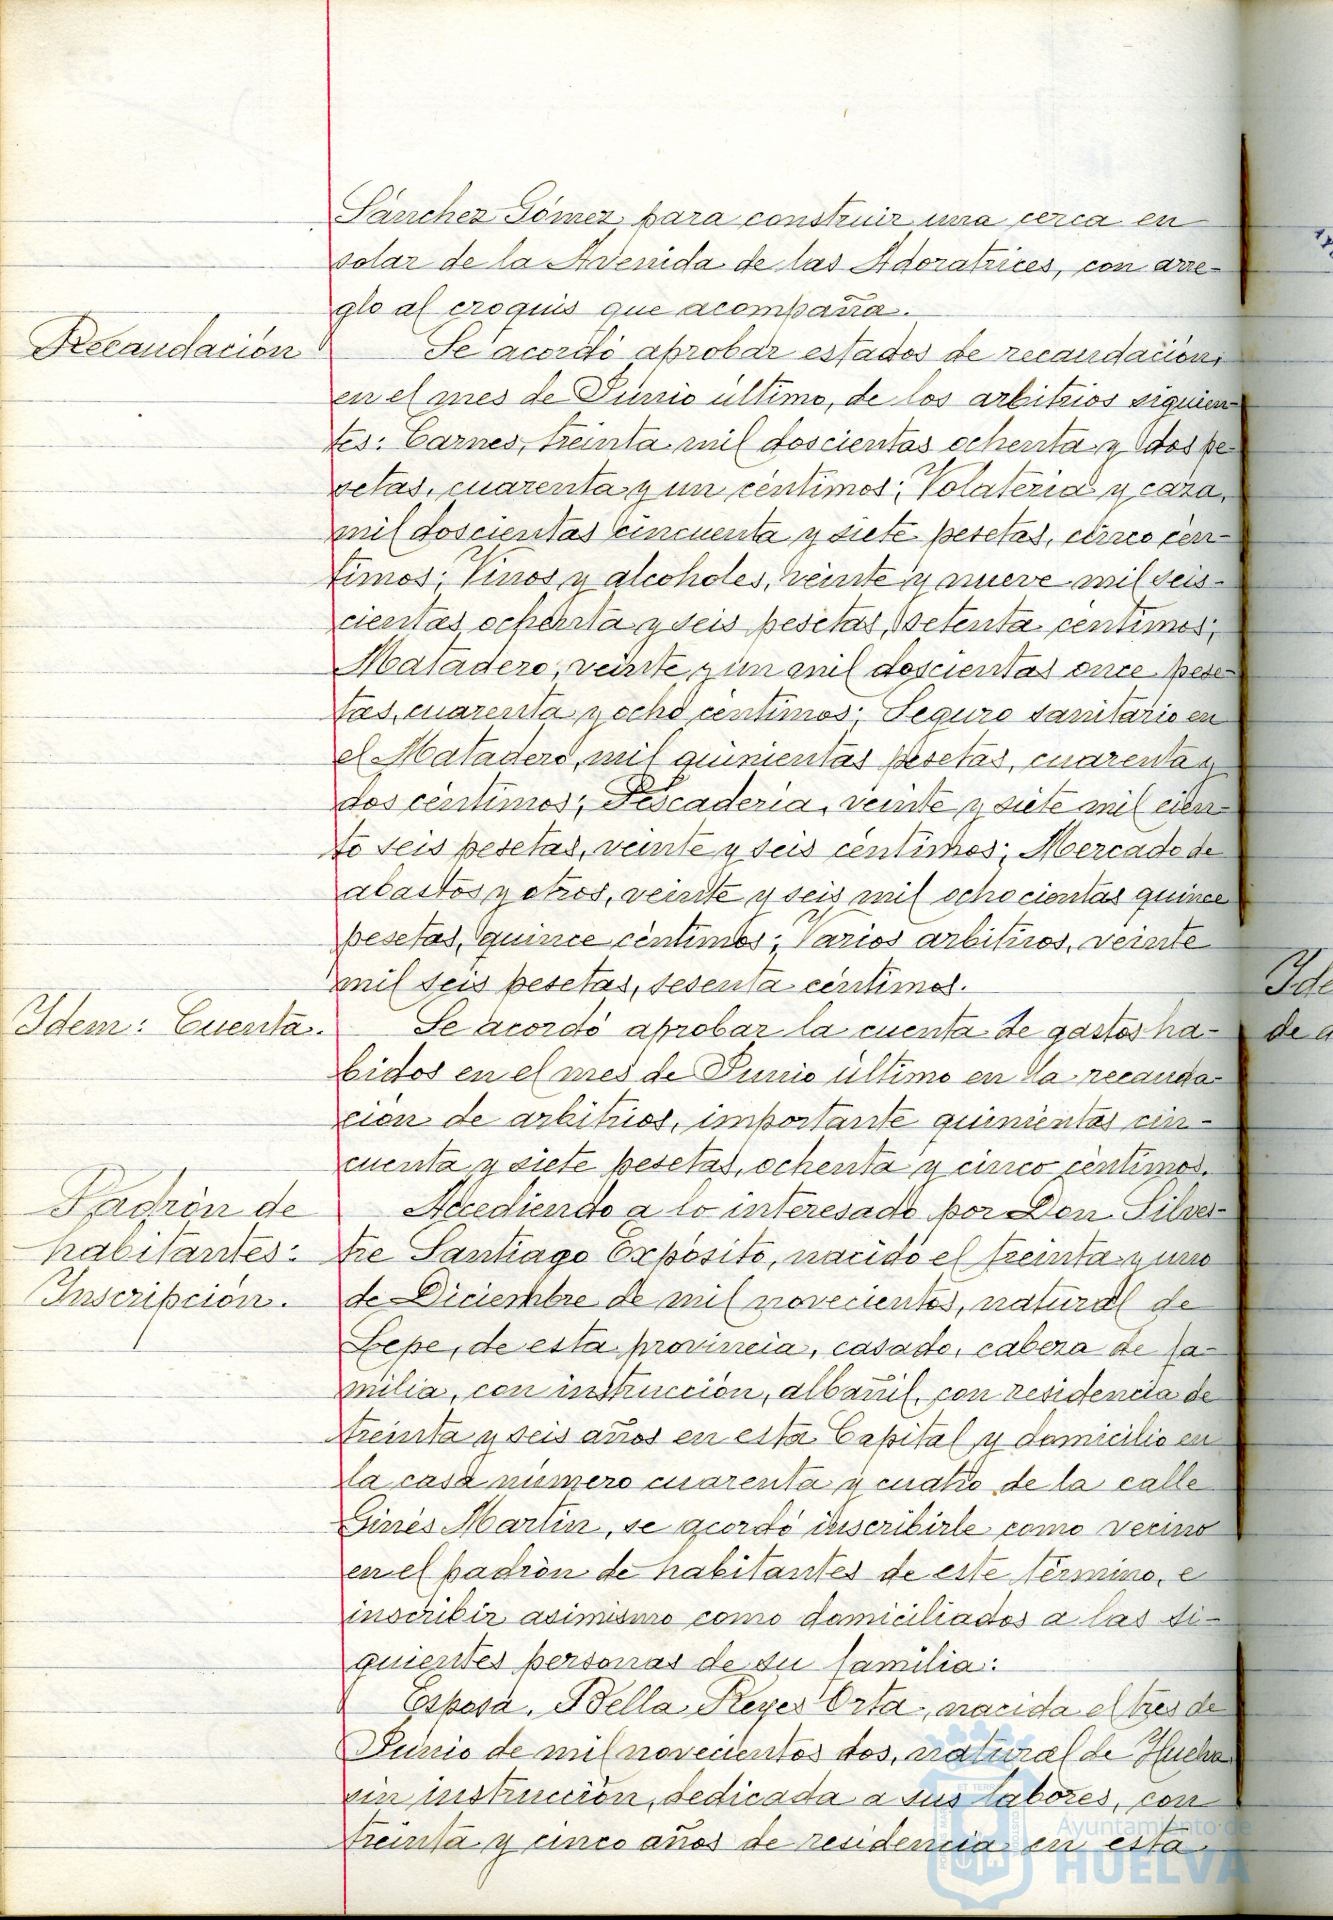 Sánchez Gómez para construir una cerca en
solar de la Avenida de las Adoratrices, con arre-
glo al croquis que acompaña.
Recaudación
Se acordó aprobar estados de recaudación,
en el mes de Junio último, de los arbitrios siguien-
tes: Carnes, treinta mil doscientas ochenta y dos pe-
setas, cuarenta y un céntimos; Volatería y caza,
mil doscientas cincuenta y siete pesetas, cinco cén-
timos; Vinos y alcoholes, veinte y nueve mil seis-
cientas ochenta y seis pesetas, setenta céntimos;
Matadero, veinte y un mil doscientas once pese-
tas, cuarenta y ocho céntimos; Seguro sanitario en
el Matadero, mil quinientas pesetas, cuarenta y
dos céntimos; Pescadería, veinte y siete mil cien-
to seis pesetas, veinte y seis céntimos; Mercado de
abastos y otros, veinte y seis mil ochocientas quince
pesetas, quince céntimos; Varios arbitrios, veinte
mil seis pesetas, sesenta céntimos.
Idem: Cuenta.
Se acordó aprobar la cuenta de gastos ha-
bidos en el mes de Junio último en la recauda-
ción de arbitrios, importante quinientas cin-
cuenta y siete pesetas, ochenta y cinco céntimos.
Padrón de
habitantes:
Inscripción.
Accediendo a lo interesado por Don Silves-
tre Santiago Expósito, nacido el treinta y uno
de Diciembre de mil novecientos, natural de
Lepe, de esta provincia, casado, cabeza de fa-
milia, con instrucción, albañil, con residencia de
treinta y seis años en esta Capital y domicilio en
la casa número cuarenta y cuatro de la calle
Ginés Martín, se acordó inscribirle como vecino
en el padrón de habitantes de este término, e
inscribir asimismo como domiciliados a las si-
guientes personas de su familia:
Esposa, Bella Reyes Orta, nacida el tres de
Junio de mil novecientos dos, natural de Huelva,
sin instrucción, dedicada a sus labores, con
treinta y cinco años de residencia en esta
Ide
de a
Ayuntamiento de
HUELVA